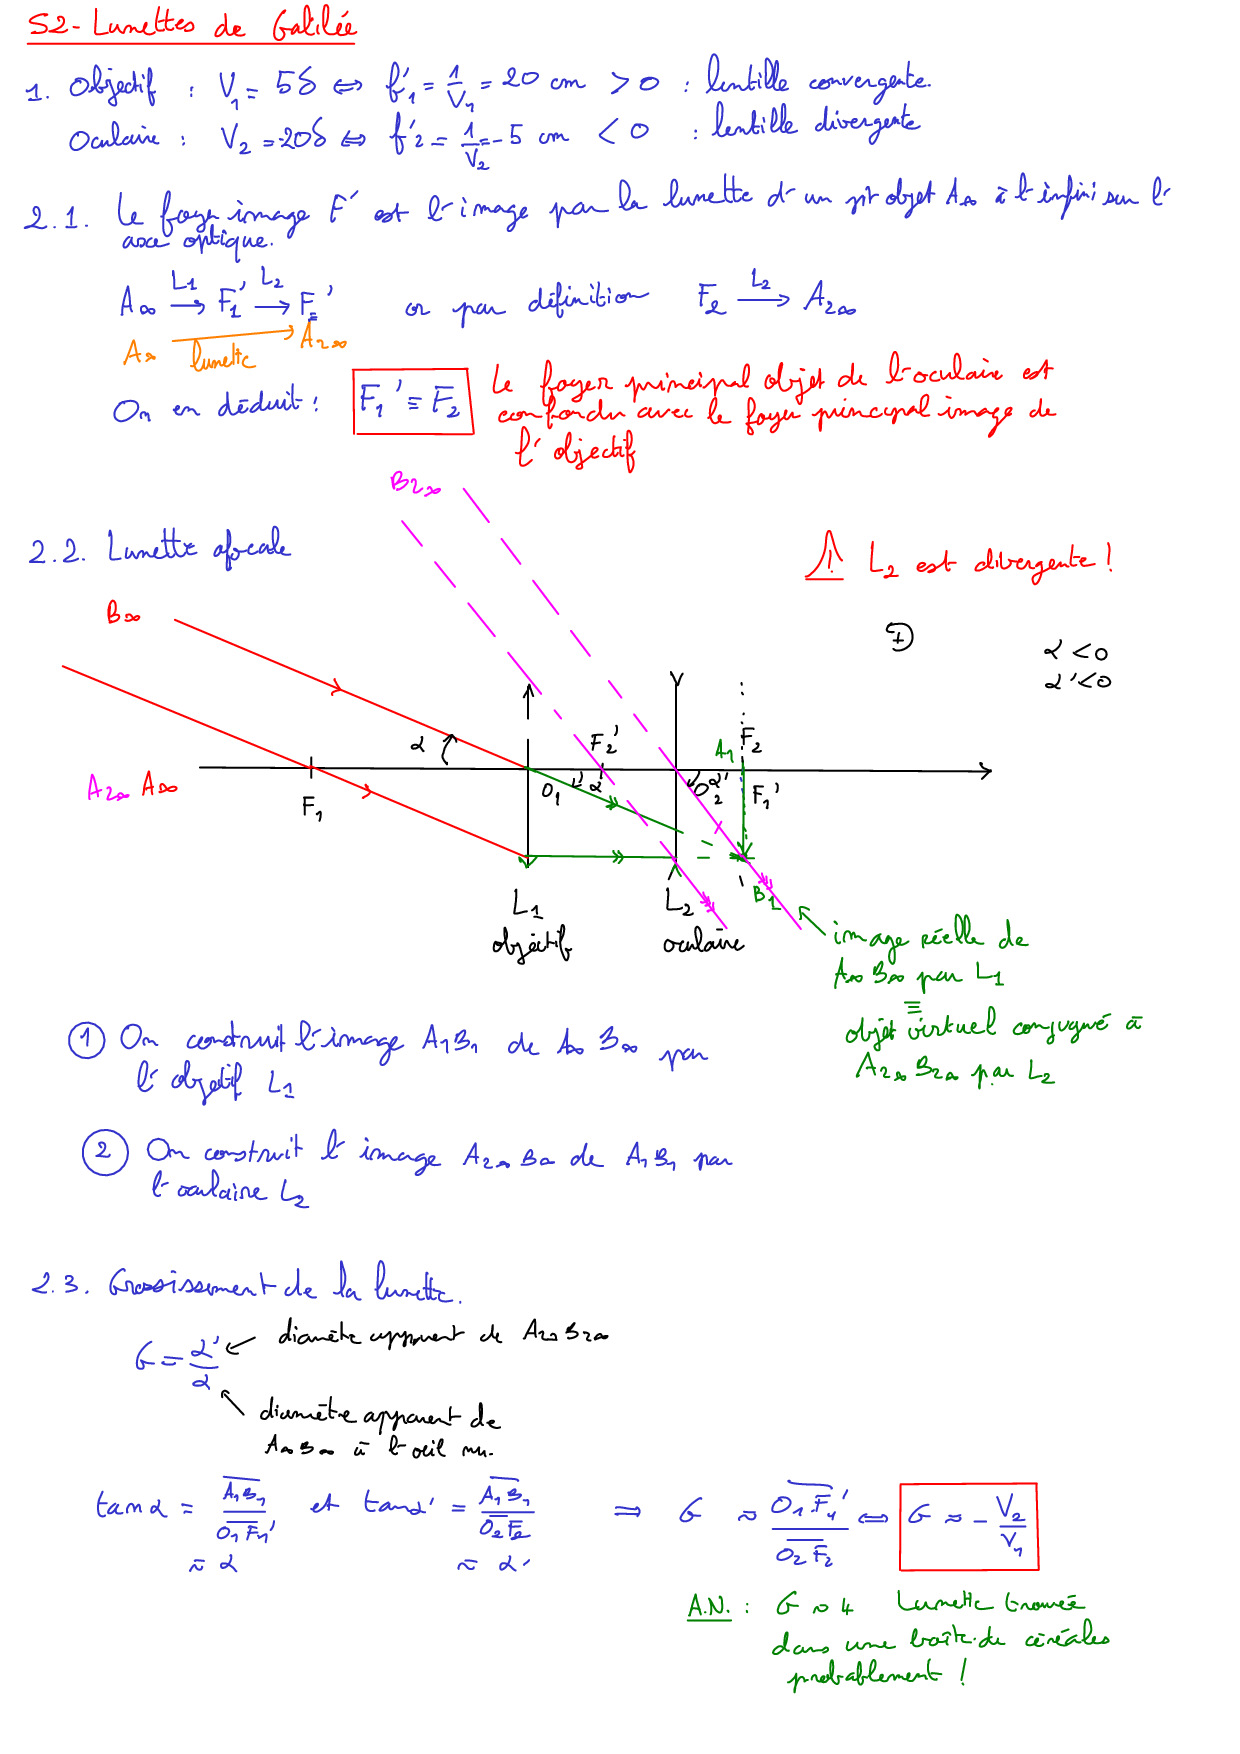 S2-Lunettes de Galilée
1. Objectif : V₁ = 5δ ⇔ f'₁ = 1/V₁ = 20 cm > 0 : lentille convergente.
Oculaire : V₂ = -20δ ⇔ f'₂ = 1/V₂ = -5 cm < 0 : lentille divergente
2.1. Le foyer image F' est l'image par la lunette d'un pt objet A∞ à l'infini sur l'
axe optique.
A∞ —L₁→ F₁' —L₂→ F' or par définition F₂ —L₂→ A₂∞
A∞ —lunette→ A₂∞
On en déduit : F₁' ≡ F₂ Le foyer principal objet de l'oculaire est
confondu avec le foyer principal image de
l'objectif
B₂∞
2.2. Lunette afocale
⚠ L₂ est divergente !
B∞
+
α < 0
α' < 0
α
F₂'
A₁
F₂
A₂∞ A∞
F₁
O₁
α'
O₂
α'
F₁'
B₁
L₁
objectif
L₂
oculaire
image réelle de
A∞ B∞ par L₁
≡
objet virtuel conjugué à
A₂∞ B₂∞ par L₂
① On construit l'image A₁B₁ de A∞ B∞ par
l'objectif L₁
② On construit l'image A₂∞ B∞ de A₁B₁ par
l'oculaire L₂
2.3. Grossissement de la lunette.
G = α'/α
diamètre apparent de A₂∞B₂∞
diamètre apparent de
A∞B∞ à l'oeil nu.
tan α = A₁B₁/O₁F₁' et tan α' = A₁B₁/O₂F₂ ⇒ G ≈ O₁F₁'/O₂F₂ ⇔ G ≈ - V₂/V₁
≈ α ≈ α'
A.N. : G ≈ 4 Lunette trouvée
dans une boîte de céréales
probablement !